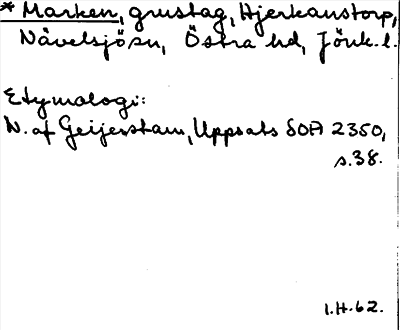 * Marken, grustag, Hjerkanstorp,
Nävelsjö sn, Östra hd, Jönk. l.
Etymologi:
N. af Geijerstam, Uppsats SOA 2350,
s. 38.
I.H.62.